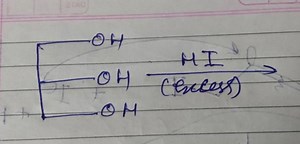 OH
OH
HI
(excess)
OH